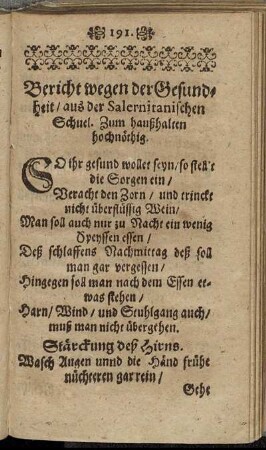 191.
Bericht wegen der Gesund-
heit / aus der Salernitanischen
Schuel. Zum haußhalten
hochnöthig.
SO ihr gesund wollet seyn / so stellt
die Sorgen ein /
Veracht den Zorn / und trinckt
nicht überflüssig Wein /
Man soll auch nur zu Nacht ein wenig
Speyssen essen /
Deß schlaffens Nachmittag deß soll
man gar vergessen /
Hingegen soll man nach dem Essen et-
was stehen /
Harn / Wind / und Stuhlgang auch /
muß man nicht übergehen.
Stärckung deß Hirns.
Wasch Augen unnd die Händ frühe
nüchteren gar rein /
Gehe